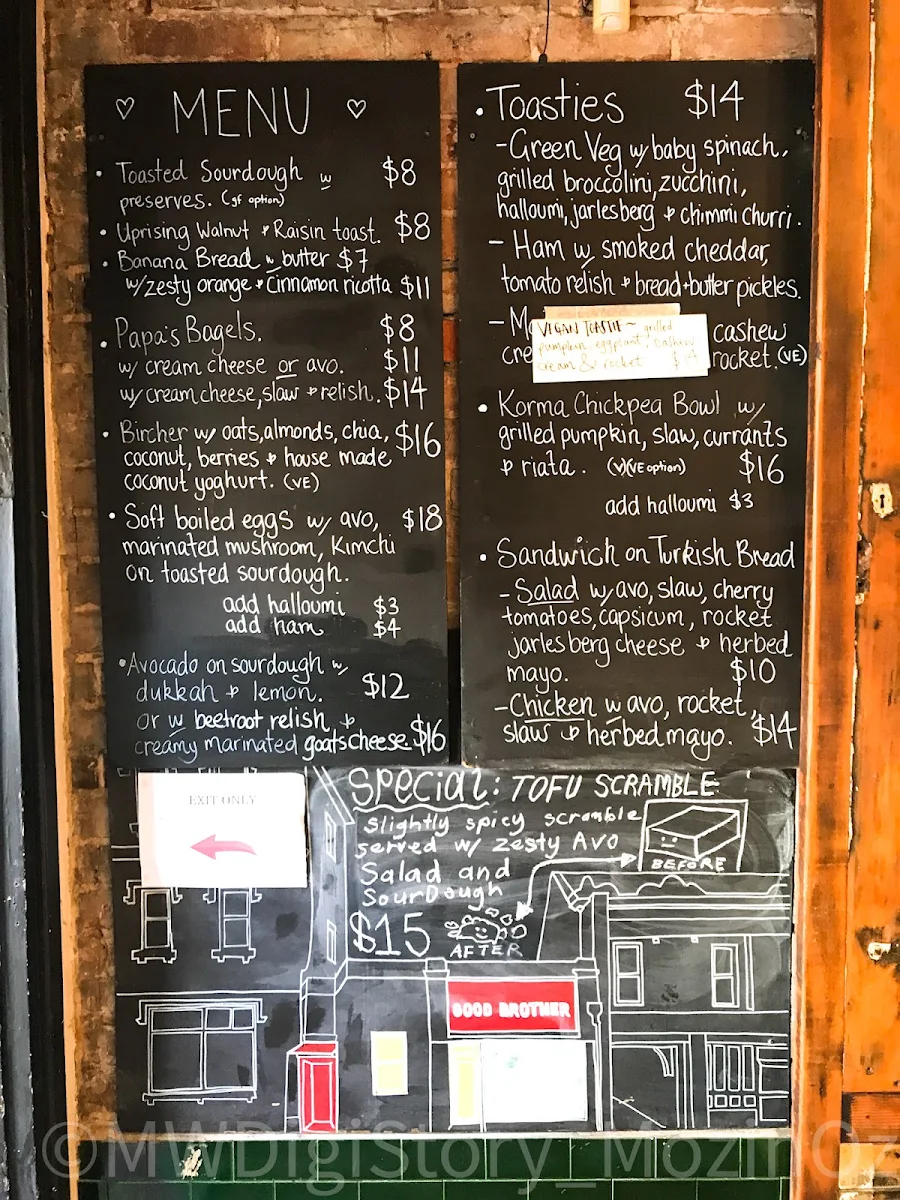 ♡ MENU ♡
• Toasted Sourdough w $8
preserves. (gf option)
• Uprising Walnut & Raisin toast. $8
• Banana Bread w butter $7
w/zesty orange & Cinnamon ricotta $11
• Papa's Bagels. $8
w/ cream cheese or avo. $11
w/ cream cheese, slaw & relish. $14
• Bircher w/ oats, almonds, chia, $16
coconut, berries & house made
coconut yoghurt. (VE)
• Soft boiled eggs w/ avo, $18
marinated mushroom, Kimchi
on toasted sourdough.
add halloumi $3
add ham $4
• Avocado on sourdough w/
dukkah & lemon. $12
or w beetroot relish &
creamy marinated goats cheese. $16
• Toasties $14
- Green Veg w/ baby spinach,
grilled broccolini, zucchini,
halloumi, jarlesberg & chimmi churri.
- Ham w/ smoked cheddar,
tomato relish & bread+butter pickles.
- M cashew
cre rocket. (VE)
VEGAN TOASTIE ~ grilled
pumpkin, eggplant, cashew
cream & rocket $14
• Korma Chickpea Bowl w/
grilled pumpkin, slaw, currants
& riata. (V)(VE option) $16
add halloumi $3
• Sandwich on Turkish Bread
- Salad w/avo, slaw, cherry
tomatoes, capsicum, rocket
jarlesberg cheese & herbed
mayo. $10
- Chicken w avo, rocket,
slaw & herbed mayo. $14
EXIT ONLY
Special: TOFU SCRAMBLE
Slightly spicy scramble
served w/ zesty Avo
Salad and
SourDough
$15
BEFORE
AFTER
GOOD BROTHER
©MWDigiStory_MozinOz